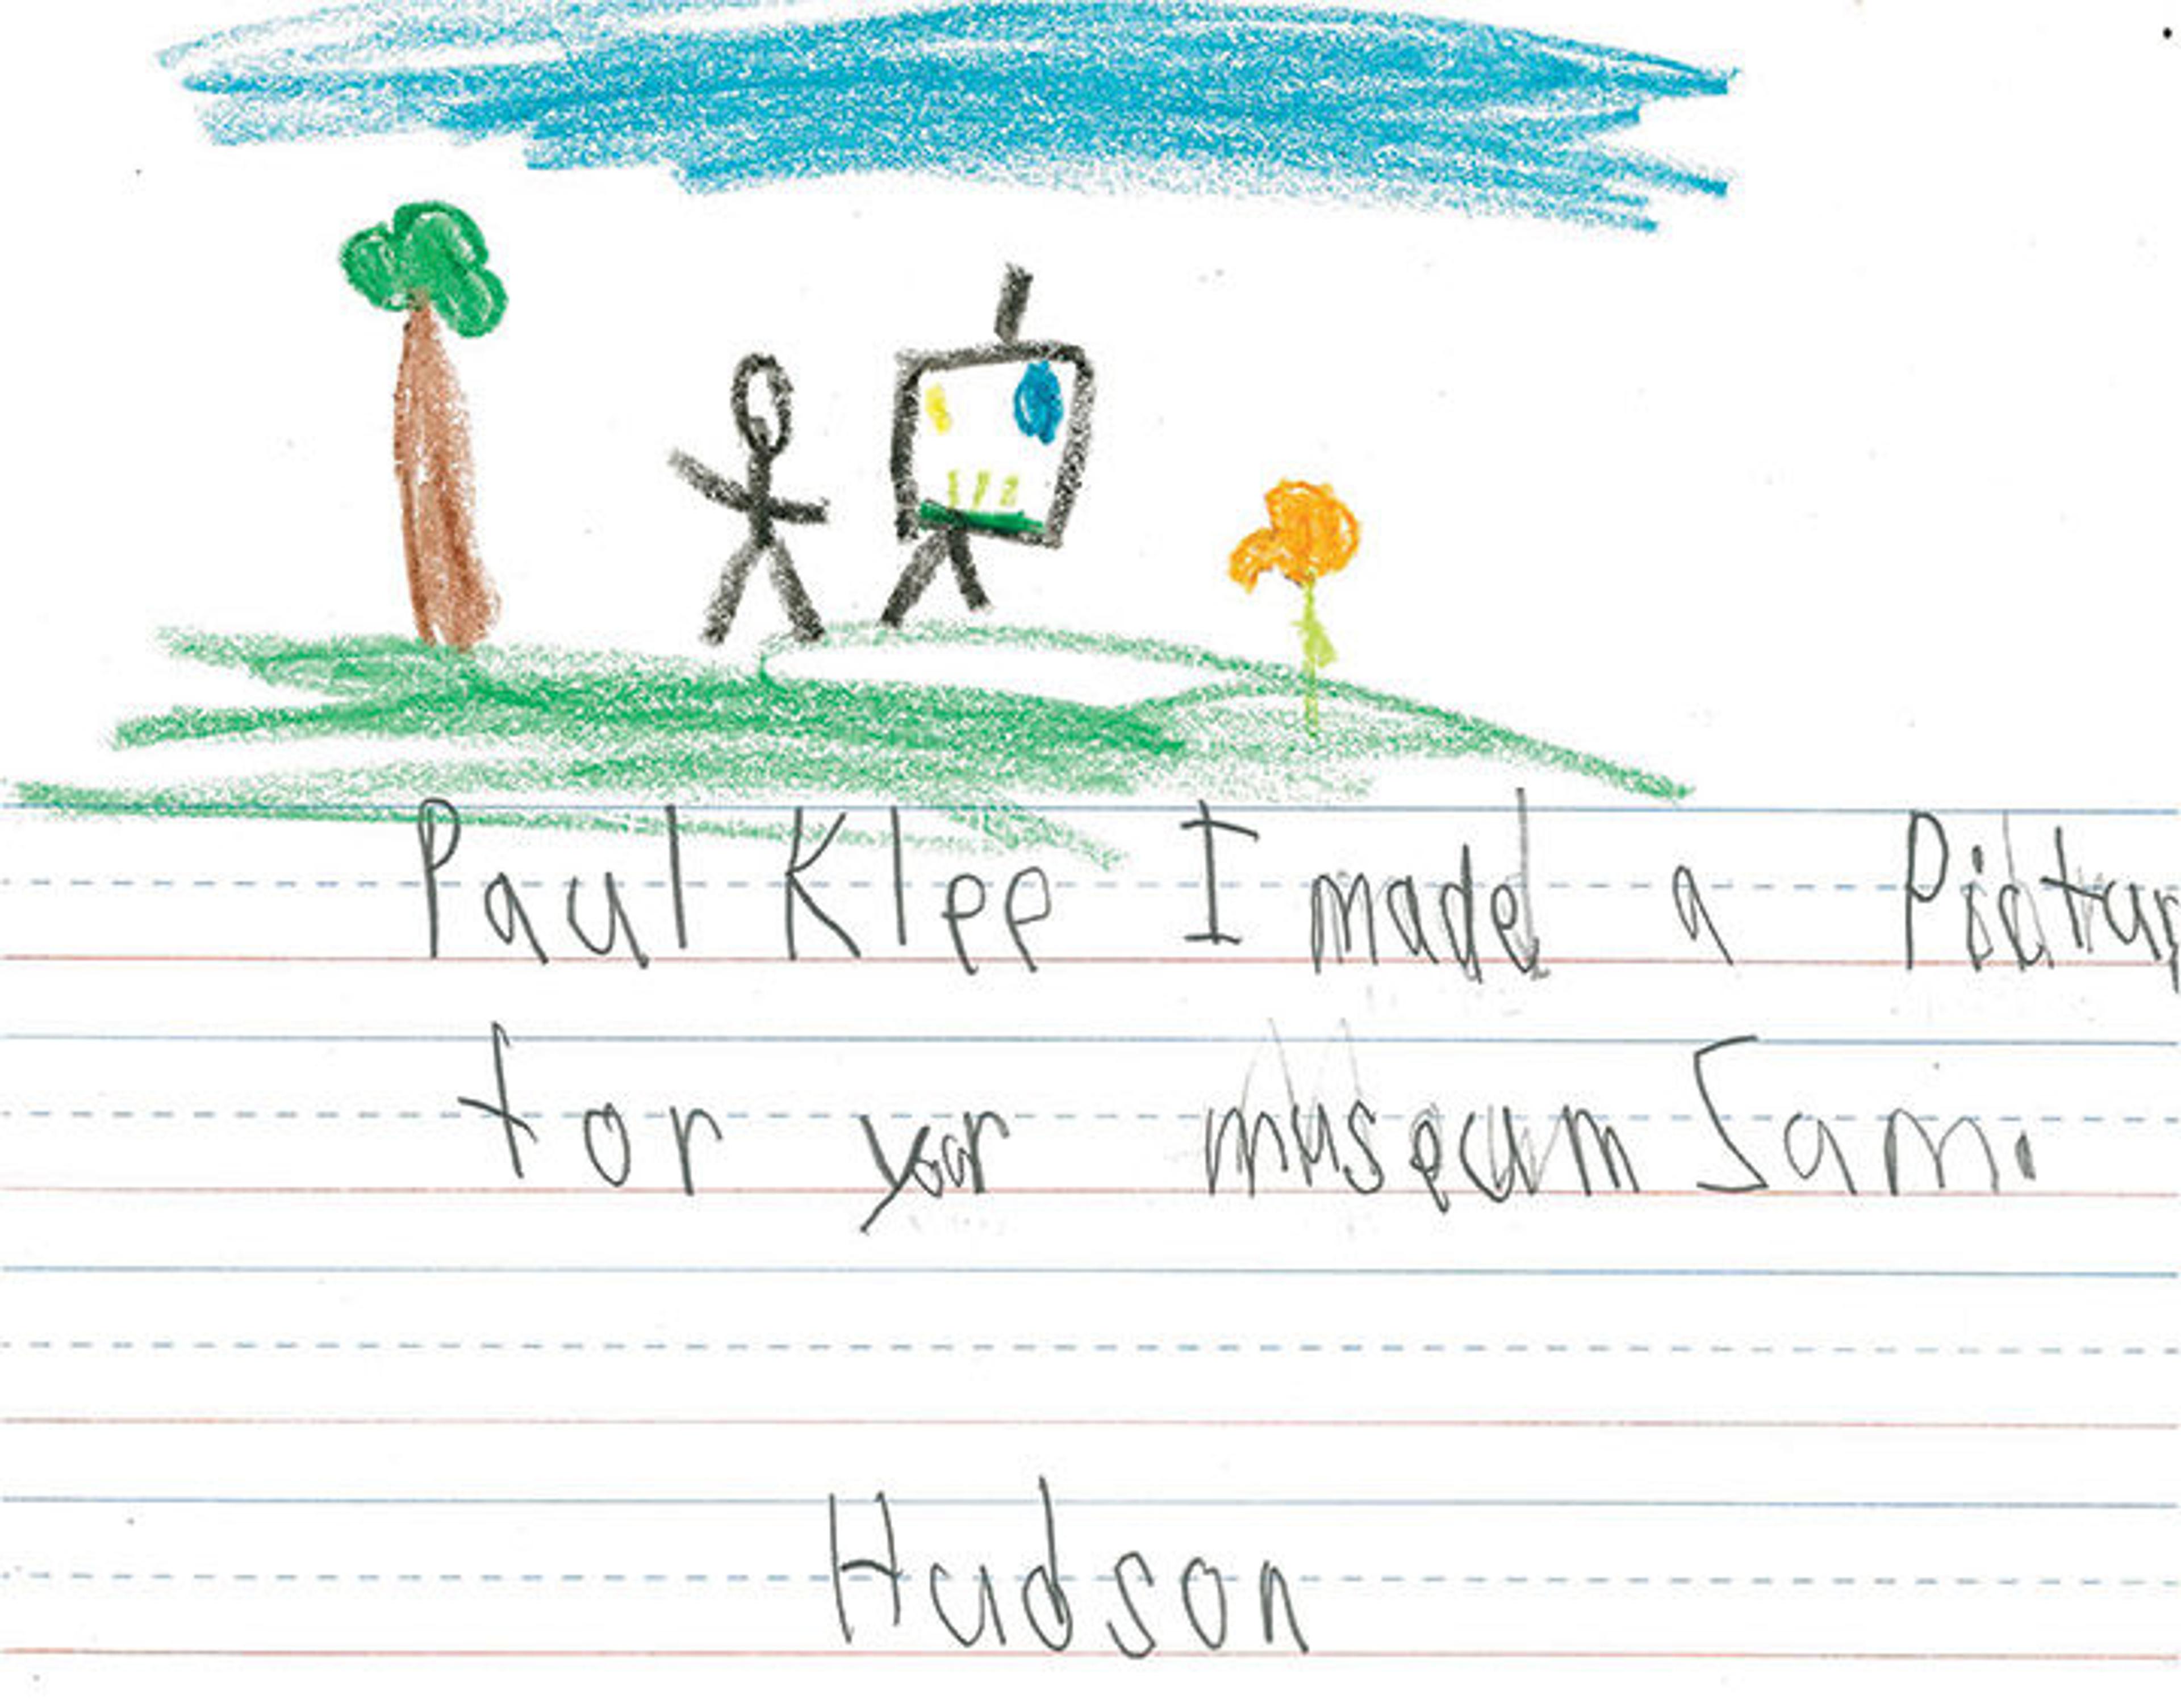 Paul Klee I made a Pictur
for your museum Sam.
Hudson